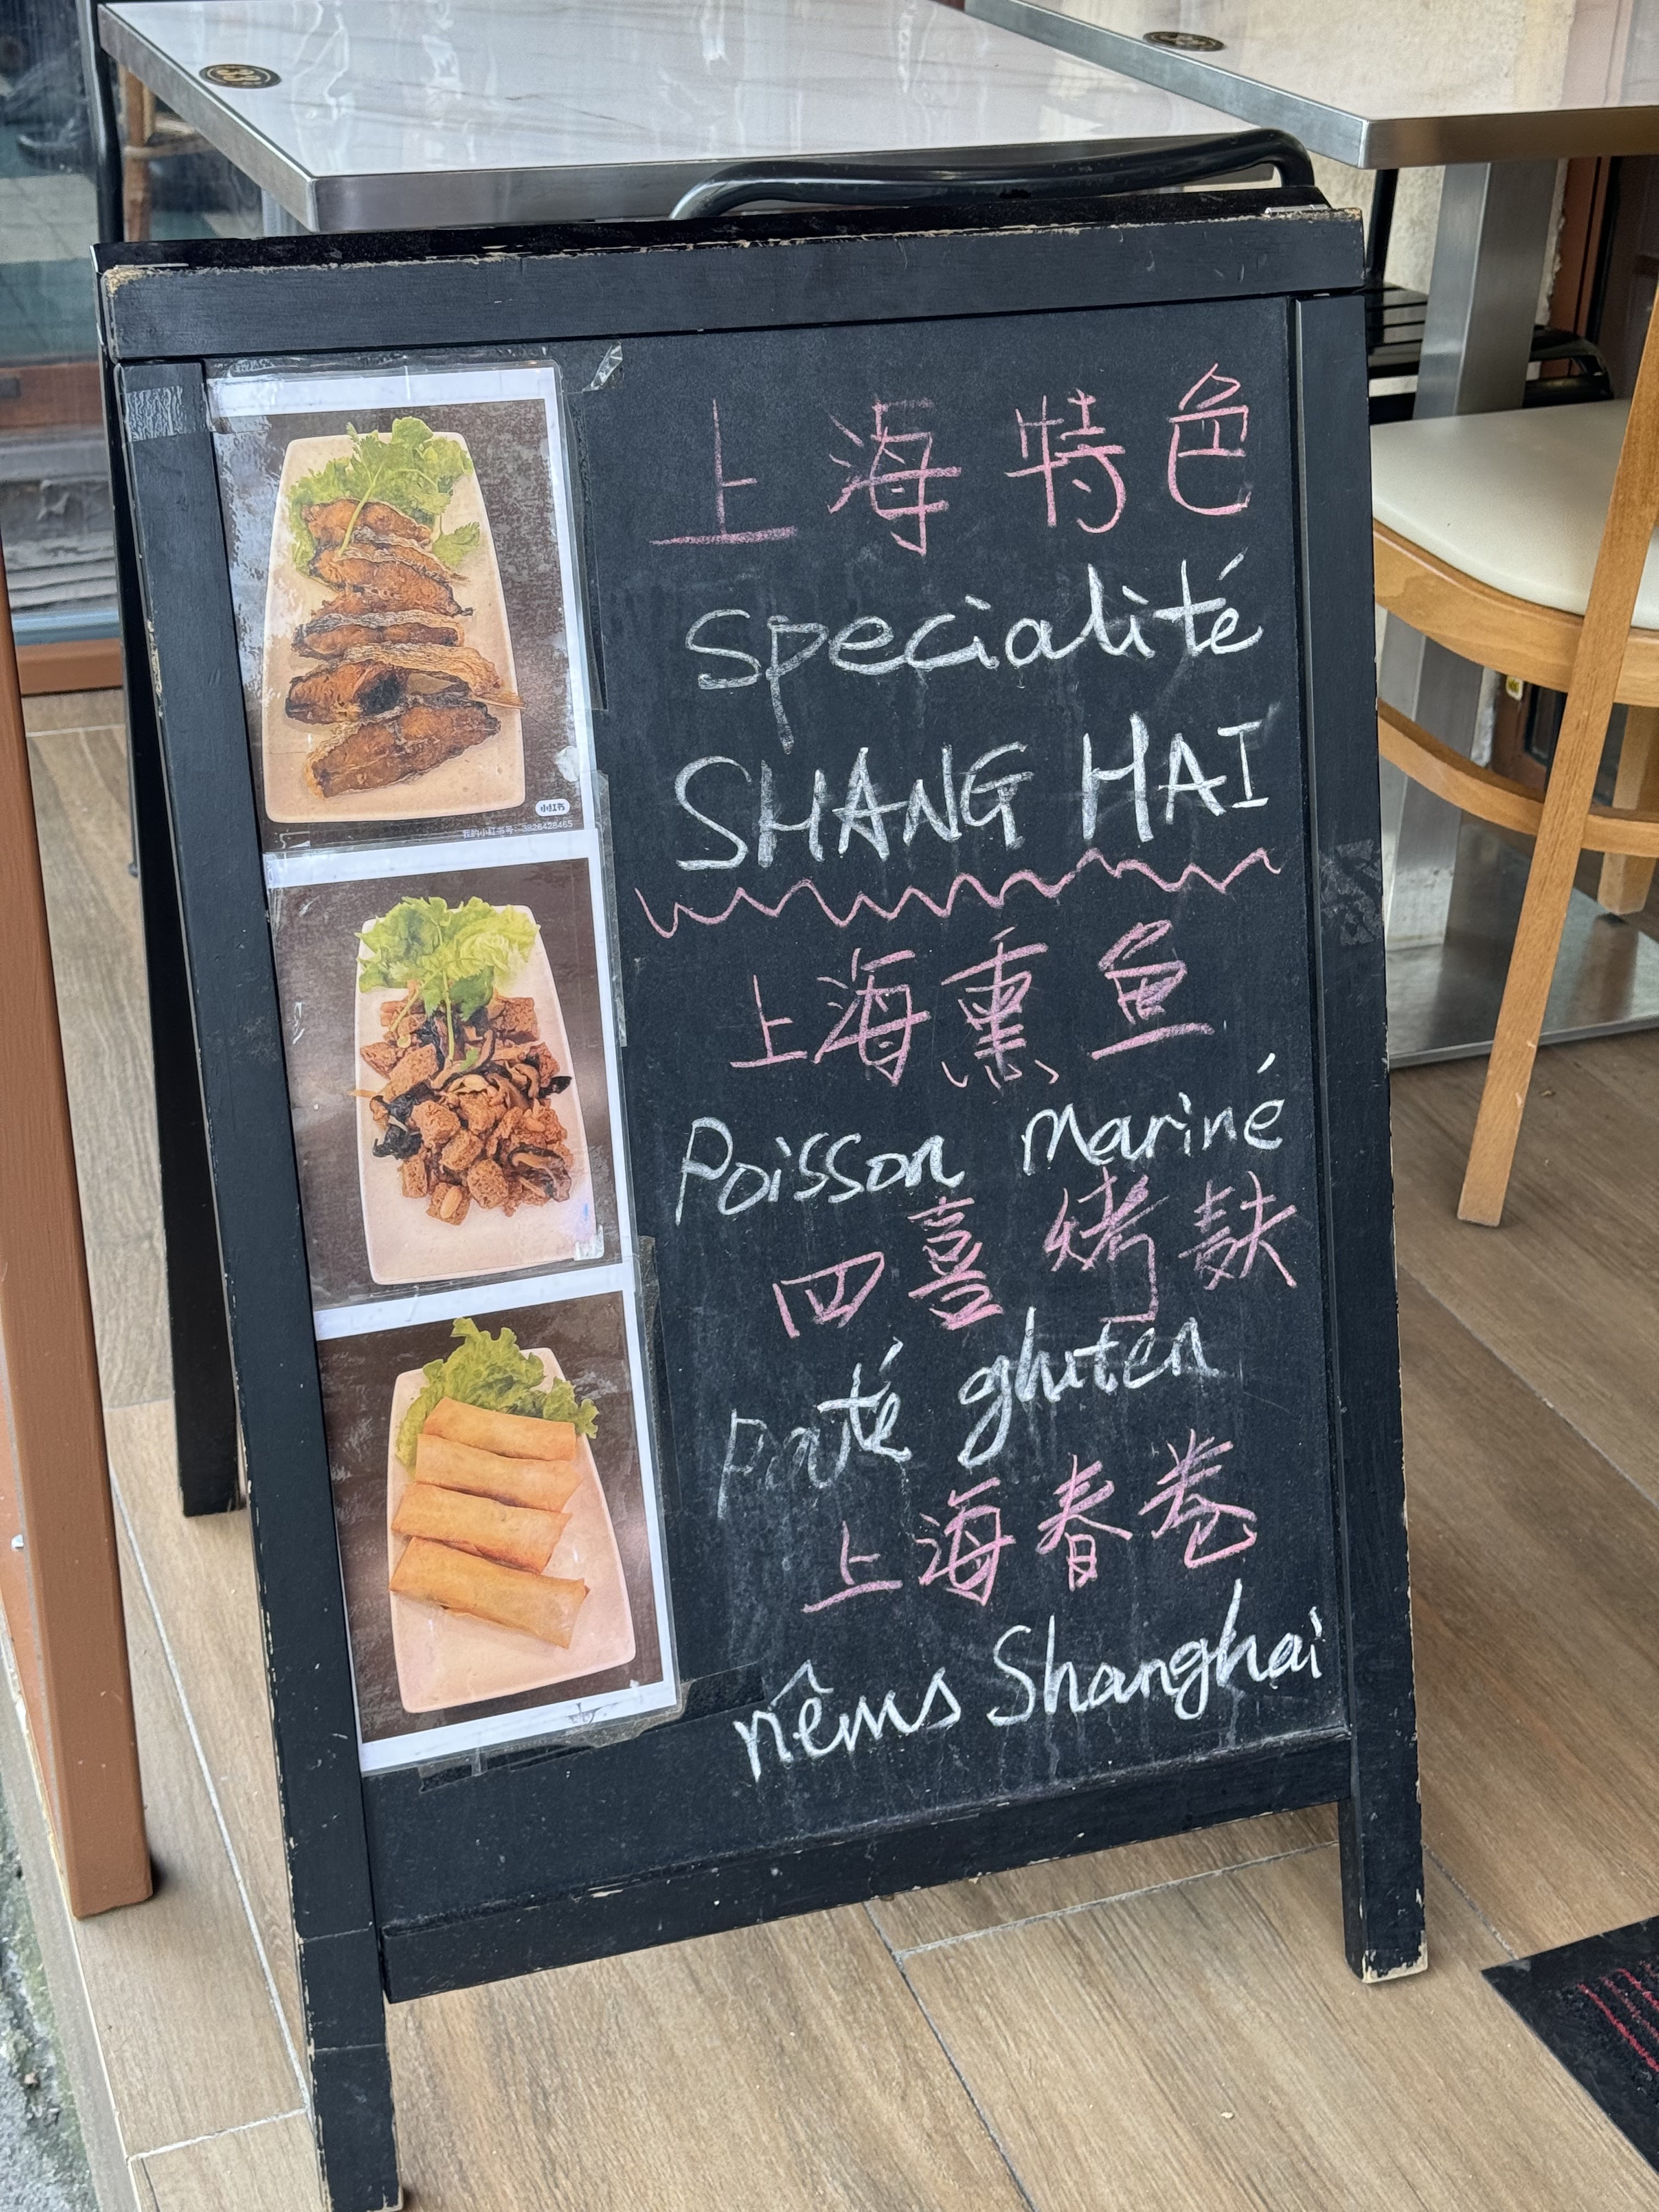 上海特色
specialité
SHANG HAI
上海熏鱼
Poisson mariné
四喜烤麸
Paté gluten
上海春卷
nêms Shanghai
小红书
我的小红书号: 3826428465